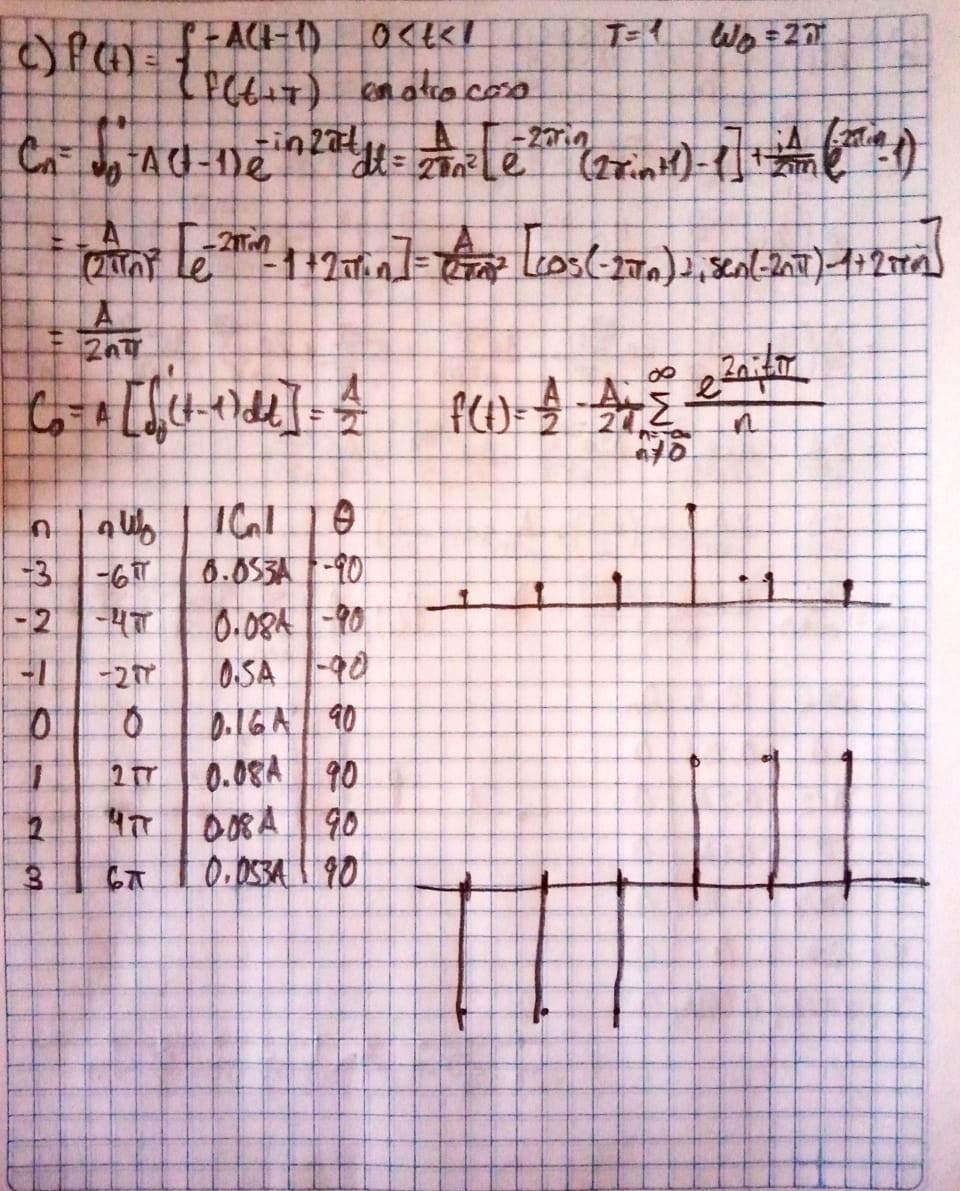 c) f(t) = { -A(t-1) 0<t<1 T=1 W₀=2π
{ f(t+T) en otro caso
Cn = ∫₀¹ -A(t-1)e^{-in2πt}dt = A/2πn² [e^{-2πin}(2πin+1)-1] + iA/2πn (e^{-2πin}-1)
= -A/(2πn)² [e^{-2πin}-1+2πin] = A/(2πn)² [cos(-2πn)+i sen(-2nπ)-1+2πin]
= A/2nπ
C₀ = A [∫₀¹(t-1)dt] = A/2 f(t) = A/2 - Ai/2π Σ_{n=-∞ n≠0}^{∞} e^{2nitπ}/n
n nW₀ |Cn| θ
-3 -6π 0.053A -90
-2 -4π 0.08A -90
-1 -2π 0.5A -90
0 0 0.16A 90
1 2π 0.08A 90
2 4π 0.08A 90
3 6π 0.053A 90